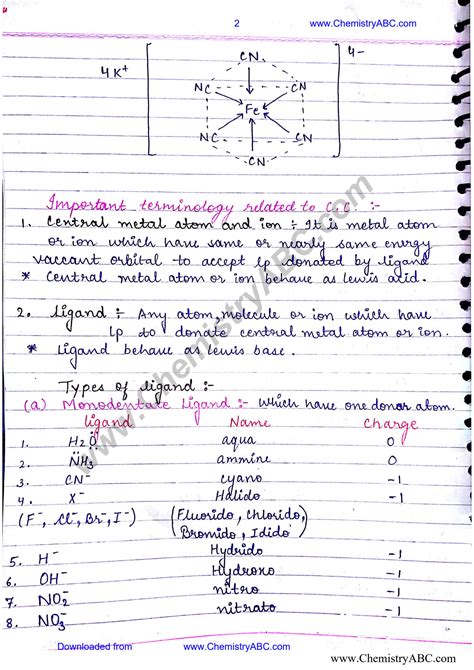 2 www.ChemistryABC.com
4K⁺ 4-
CN
NC CN
Fe
NC CN
CN
Important terminology related to C.C. :-
1. Central metal atom and ion :- It is metal atom
or ion which have same or nearly same energy
vaccant orbital to accept lp donated by ligand
* Central metal atom or ion behave as lewis acid.
2. Ligand :- Any atom, molecule or ion which have
lp to donate central metal atom or ion.
* Ligand behave as lewis base.
Types of ligand :-
(a) Monodentate Ligand :- Which have one donor atom.
ligand Name Charge
1. H₂Ö aqua 0
2. N̈H₃ ammine 0
3. CN⁻ cyano -1
4. X⁻ Halido -1
(F⁻, Cl⁻, Br⁻, I⁻) (Fluorido, Chlorido,
Bromido, Idido)
5. H⁻ Hydrido -1
6. OH⁻ Hydroxo -1
7. NO₂⁻ nitro -1
8. NO₃⁻ nitrato -1
www.ChemistryABC.com
Downloaded from www.ChemistryABC.com
www.ChemistryABC.com